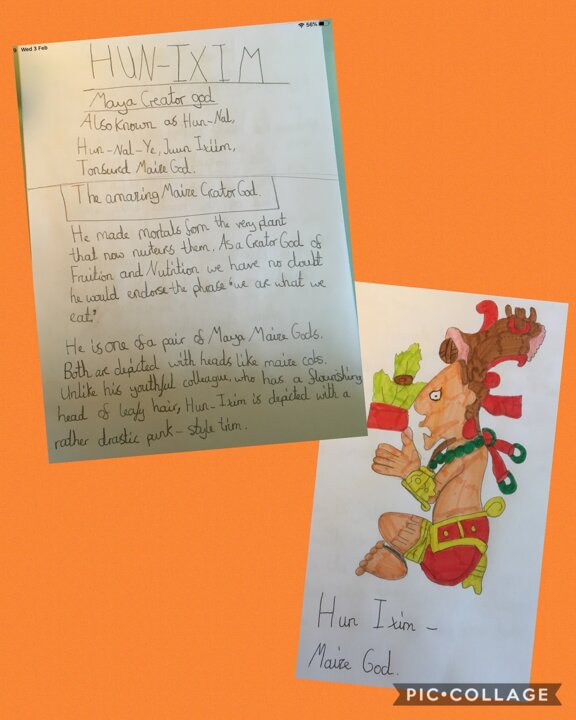 9 Wed 3 Feb
56%
HUN-IXIM
Maya Creator god
Also known as Hun-Nal,
Hun-Nal-Ye, Juun Ixiim,
Tonsured Maize God.
The amazing Maize Crator God.
He made mortals form the very plant
that now nuteurs them. As a Crator God of
Fruition and Nutrition we have no doubt
he would endorse the phrase "we are what we
eat".
He is one of a pair of Maya Maize Gods.
Both are depicted with heads like maize cobs.
Unlike his youthful colleague, who has a flourishing
head of leafy hair, Hun-Ixim is depicted with a
rather drastic punk-style trim.
Hun Ixim -
Maize God.
PIC•COLLAGE